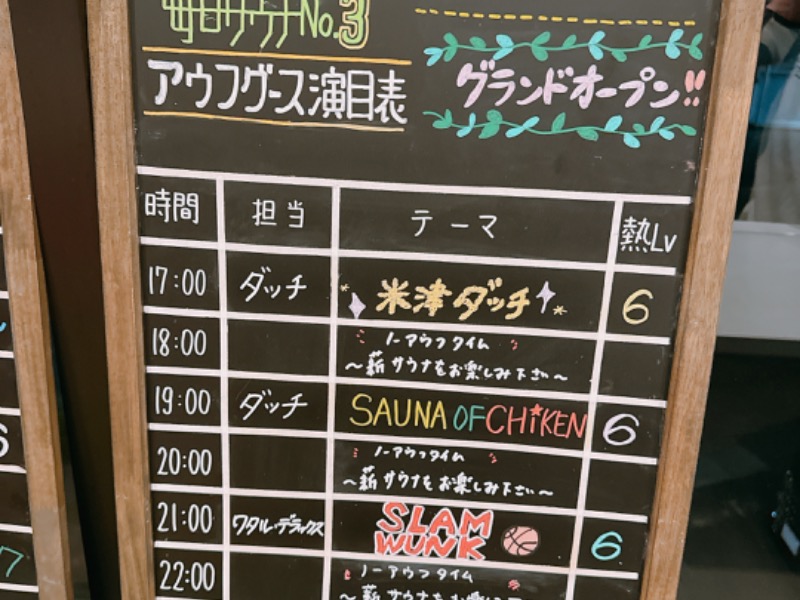 No.3
アウフグース演目表
グランドオープン!!
時間 担当 テーマ 熱Lv
17:00 ダッチ 米津ダッチ 6
18:00 ノーアウフタイム
～薪サウナをお楽しみ下さい～
19:00 ダッチ SAUNA OF CHiKEN 6
20:00 ノーアウフタイム
～薪サウナをお楽しみ下さい～
21:00 ワタル・デラックス SLAM
WUNK 6
22:00 ノーアウフタイム
～薪サウナをお楽
7